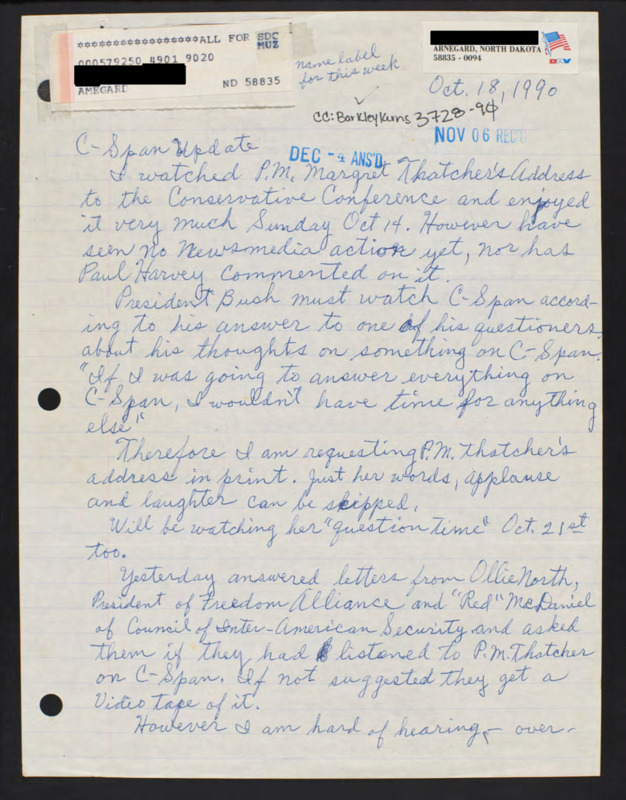 ******************ALL FOR SDC
MUZ
000579250 4901 9020
AMEGARD ND 58835
name label
for this week
ARNEGARD, NORTH DAKOTA
58835 - 0094
DAV
Oct. 18, 1990
CC: Barkley Kerns 3728-94
NOV 06 REC'D
C-Span Update
DEC -4 ANS'D
I watched P.M. Margret Thatcher's Address
to the Conservative Conference and enjoyed
it very much Sunday Oct 14. However have
seen no Newsmedia action yet, nor has
Paul Harvey commented on it.
President Bush must watch C-Span accord-
ing to his answer to one of his questioners
about his thoughts on something on C-Span.
"If I was going to answer everything on
C-Span, I wouldn't have time for anything
else"
Therefore I am requesting P.M. Thatcher's
address in print. Just her words, applause
and laughter can be skipped.
Will be watching her "question time" Oct. 21st
too.
Yesterday answered letters from Ollie North,
President of Freedom Alliance and "Red" McDaniel
of Council of Inter-American Security and asked
them if they had listened to P.M. Thatcher
on C-Span. If not suggested they get a
Video tape of it.
However I am hard of hearing, - over -